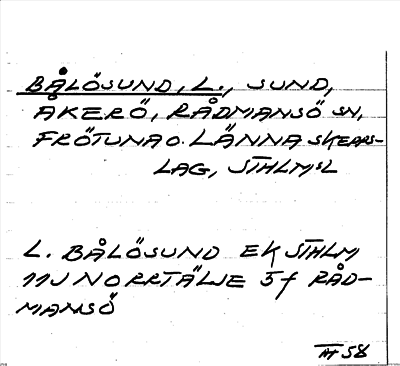 BÅLÖSUND, L., SUND,
ÅKERÖ, RÅDMANSÖ SN,
FRÖTUNA O. LÄNNA SKEPPS-
LAG, STHLMSL
L. BÅLÖSUND EK STHLM
11J NORRTÄLJE 5f RÅD-
MANSÖ
58